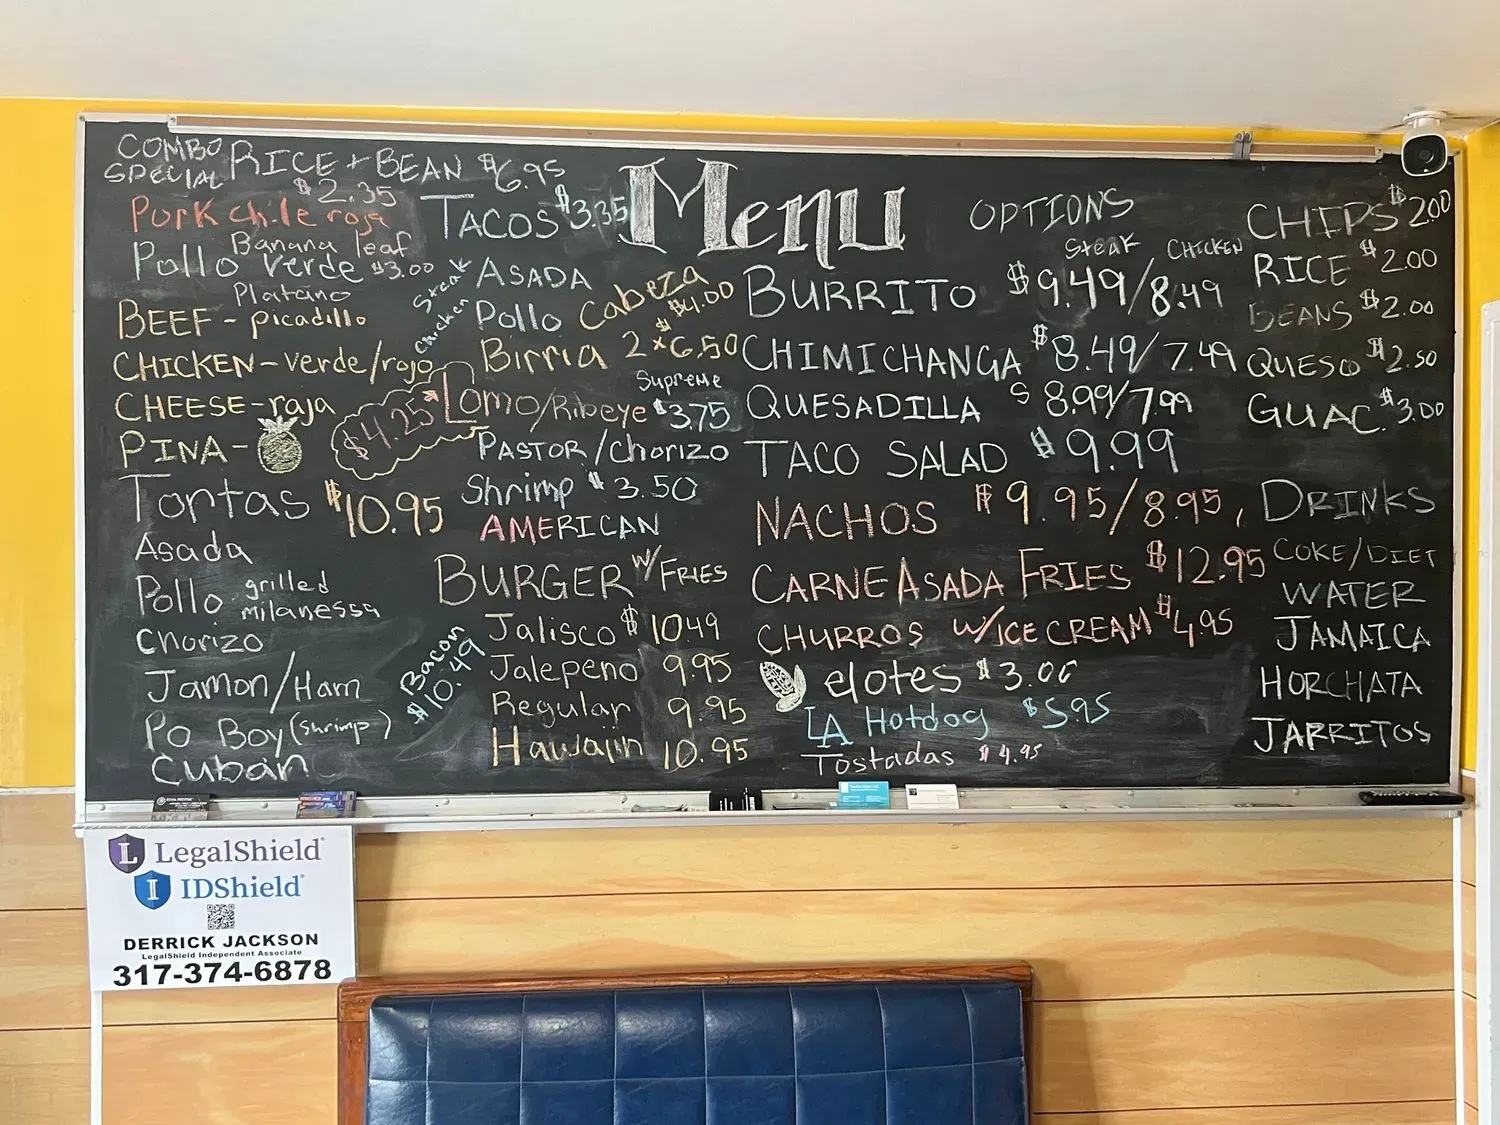 COMBO SPECIAL RICE + BEAN $6.95
$2.35
Purk chile roja
Banana leaf
Pollo verde $3.00
Platano
BEEF - picadillo
CHICKEN - verde/rojo
CHEESE - raja
PINA -
Tortas $10.95
Asada
Pollo grilled milanessa
Chorizo
Jamon/Ham
Po Boy (shrimp)
Cuban
Menu
TACOS $3.35
Steak ASADA
Chicken Pollo
Cabeza $4.00
Birria 2 x $6.50
$4.25 Lomo/Ribeye
Supreme $3.75
PASTOR/Chorizo
Shrimp $3.50
AMERICAN
BURGER w/FRIES
Jalisco $10.49
Jalepeno 9.95
Regular 9.95
Hawaiin 10.95
Bacon $10.49
OPTIONS
Steak CHICKEN
BURRITO $9.49/8.49
CHIMICHANGA $8.49/7.49
QUESADILLA $8.99/7.99
TACO SALAD $9.99
NACHOS $9.95/8.95,
CARNE ASADA FRIES $12.95
CHURROS w/ICE CREAM $4.95
elotes $3.00
LA Hotdog $5.95
Tostadas $4.95
CHIPS $2.00
RICE $2.00
BEANS $2.00
QUESO $2.50
GUAC. $3.00
DRINKS
COKE/DIET
WATER
JAMAICA
HORCHATA
JARRITOS
L LegalShield
I IDShield
DERRICK JACKSON
LegalShield Independent Associate
317-374-6878